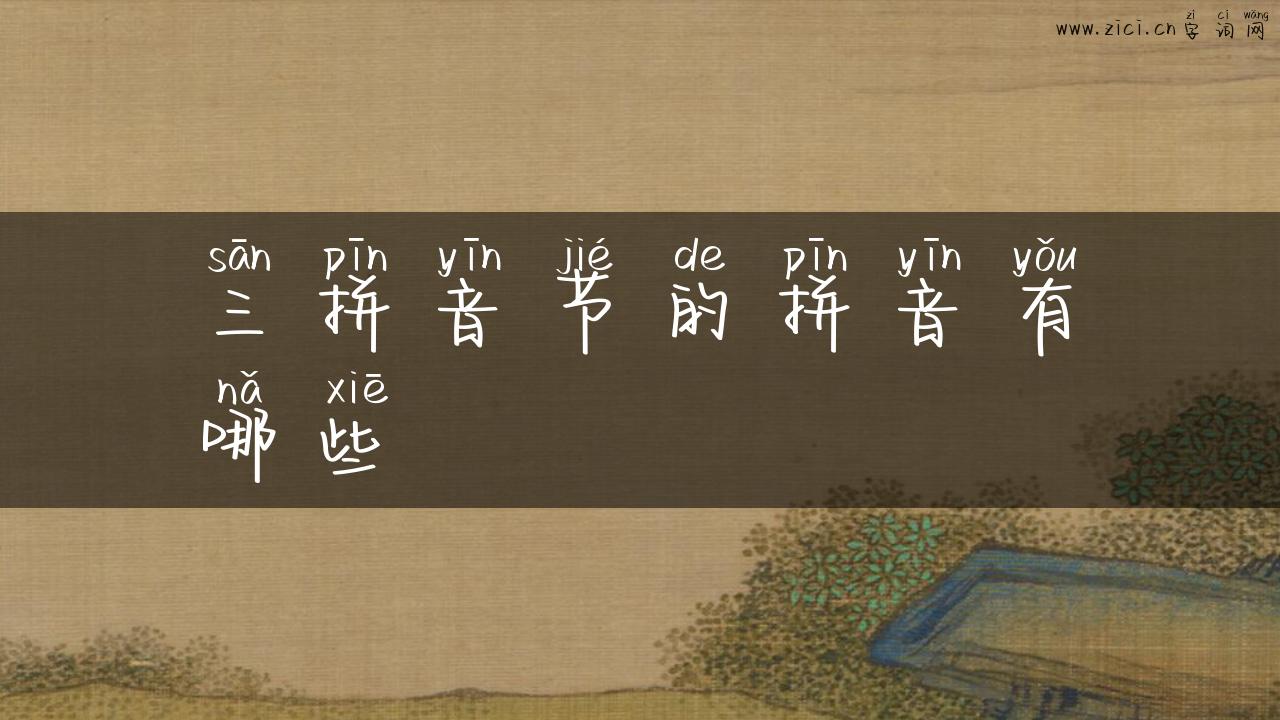 zì cí wǎng
www.zici.cn 字 词 网
sān pīn yīn jié de pīn yīn yǒu
三 拼 音 节 的 拼 音 有
nǎ xiē
哪 些